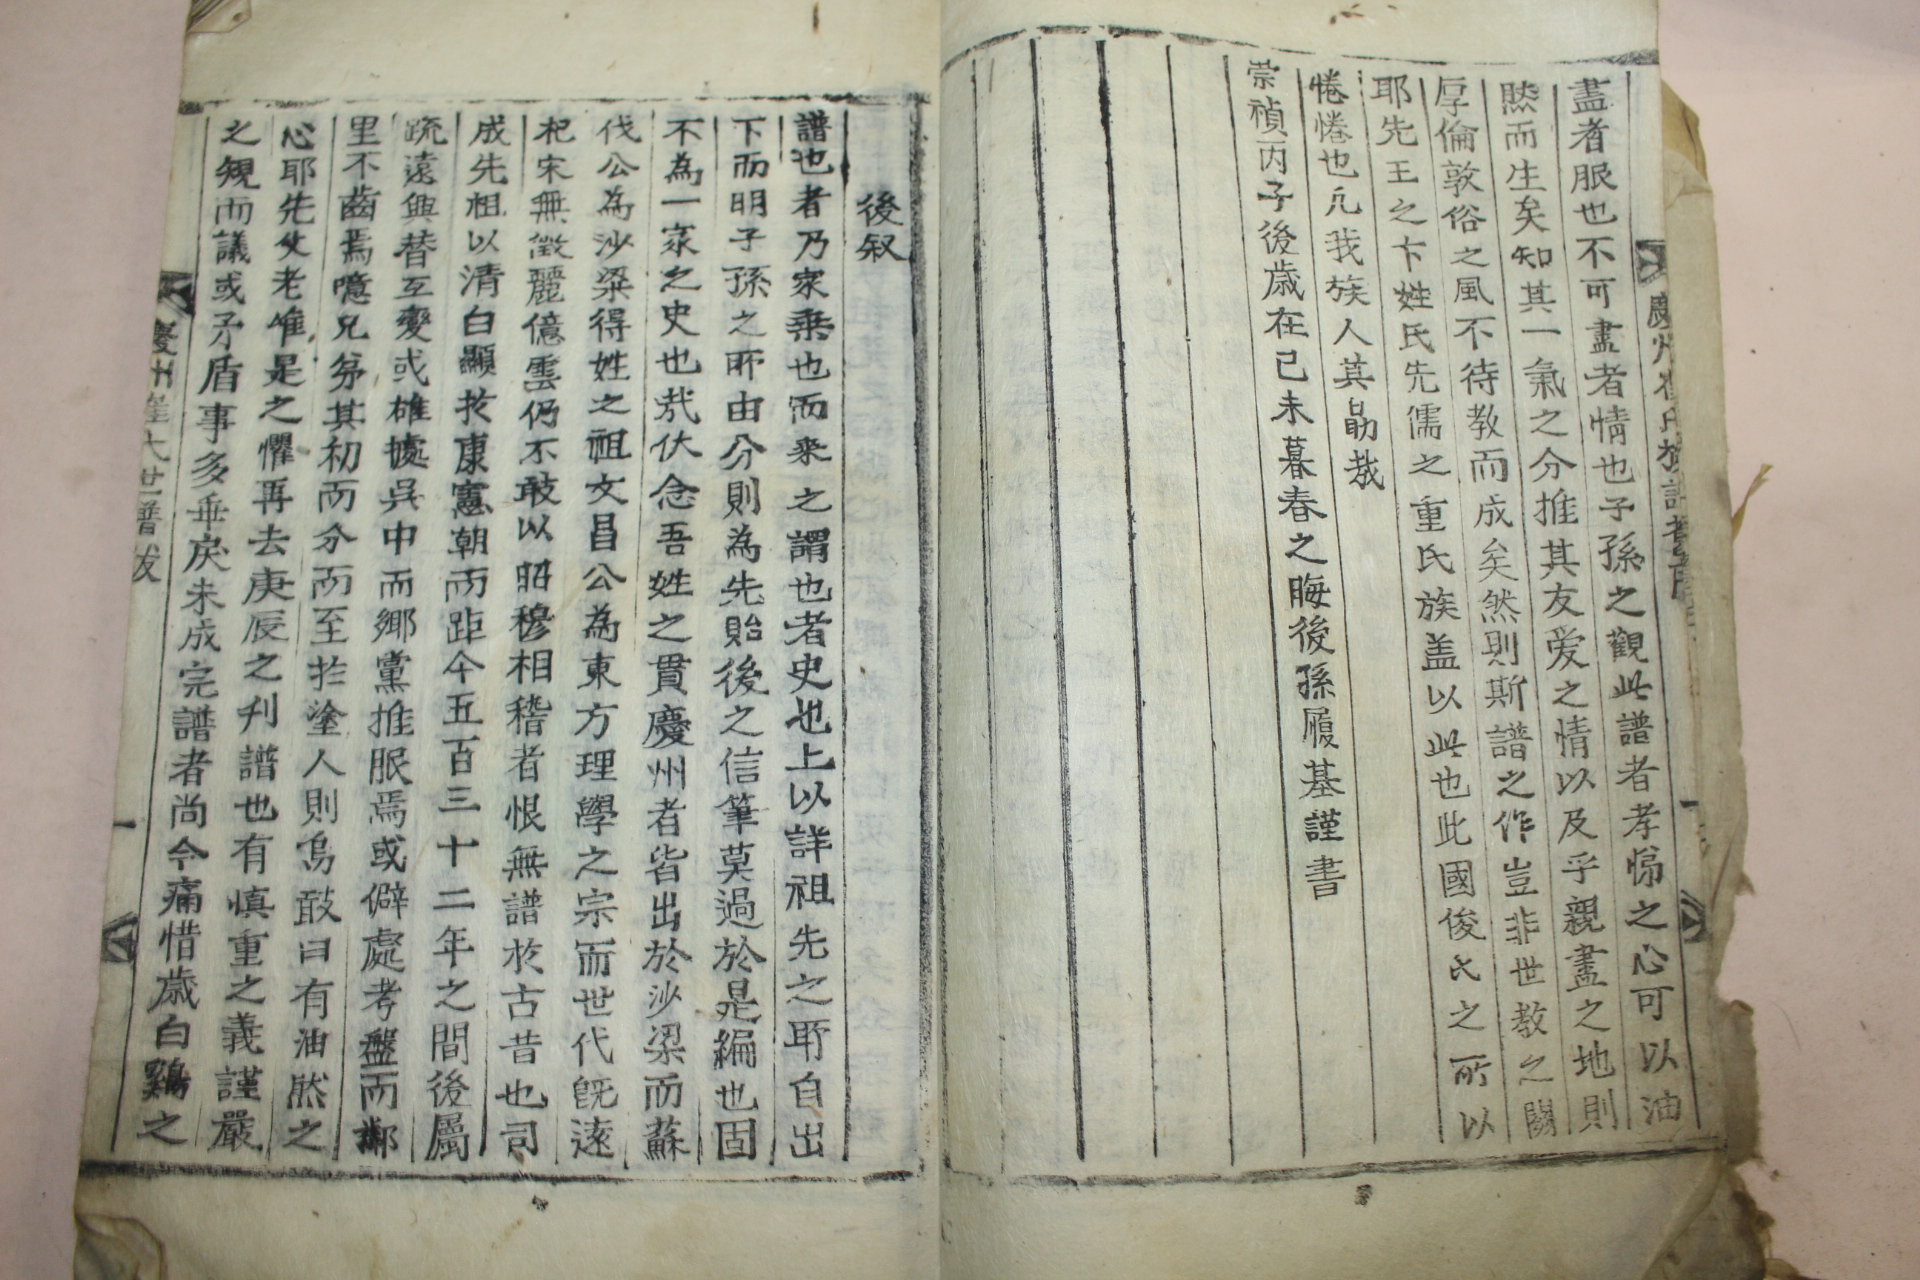 盡者服也不可盡者情也子孫之觀此譜者孝悌之心可以油
然而生矣知其一氣之分推其友爱之情以及乎親盡之地則
厚倫敦俗之風不待教而成矣然則斯譜之作豈非世教之關
耶先王之卞姓氏先儒之重氏族盖以此也此國俊氏之所以
惓惓也凡我族人其勗哉
崇禎丙子後歳在己未暮春之晦後孫履基謹書
後叙
譜也者乃家乗也而来之謂也者史也上以詳祖先之所自出
下而明子孫之所由分則為先貽後之信筆莫過於是編也固
不為一家之史也哉伏念吾姓之貫慶州者皆出於沙梁而蘇
伐公為沙梁得姓之祖文昌公為東方理學之宗而世代旣遠
杞宋無徴麗億雲仍不敢以昭穆相稽者恨無譜於古昔也司
成先祖以清白顯於康憲朝而距今五百三十二年之間後屬
疏遠興替互變或雄據呉中而鄉黨推服焉或僻處考盤而鄰
里不齒焉噫兄弟其初而分而至扵塗人則烏敢曰有油然之
心耶先父老惟是之懼再去庚辰之刋譜也有慎重之義謹嚴
之規而議或矛盾事多乖戾未成完譜者尚今痛惜歳白鷄之
慶州崔氏世譜跋
一
慶州崔氏族譜